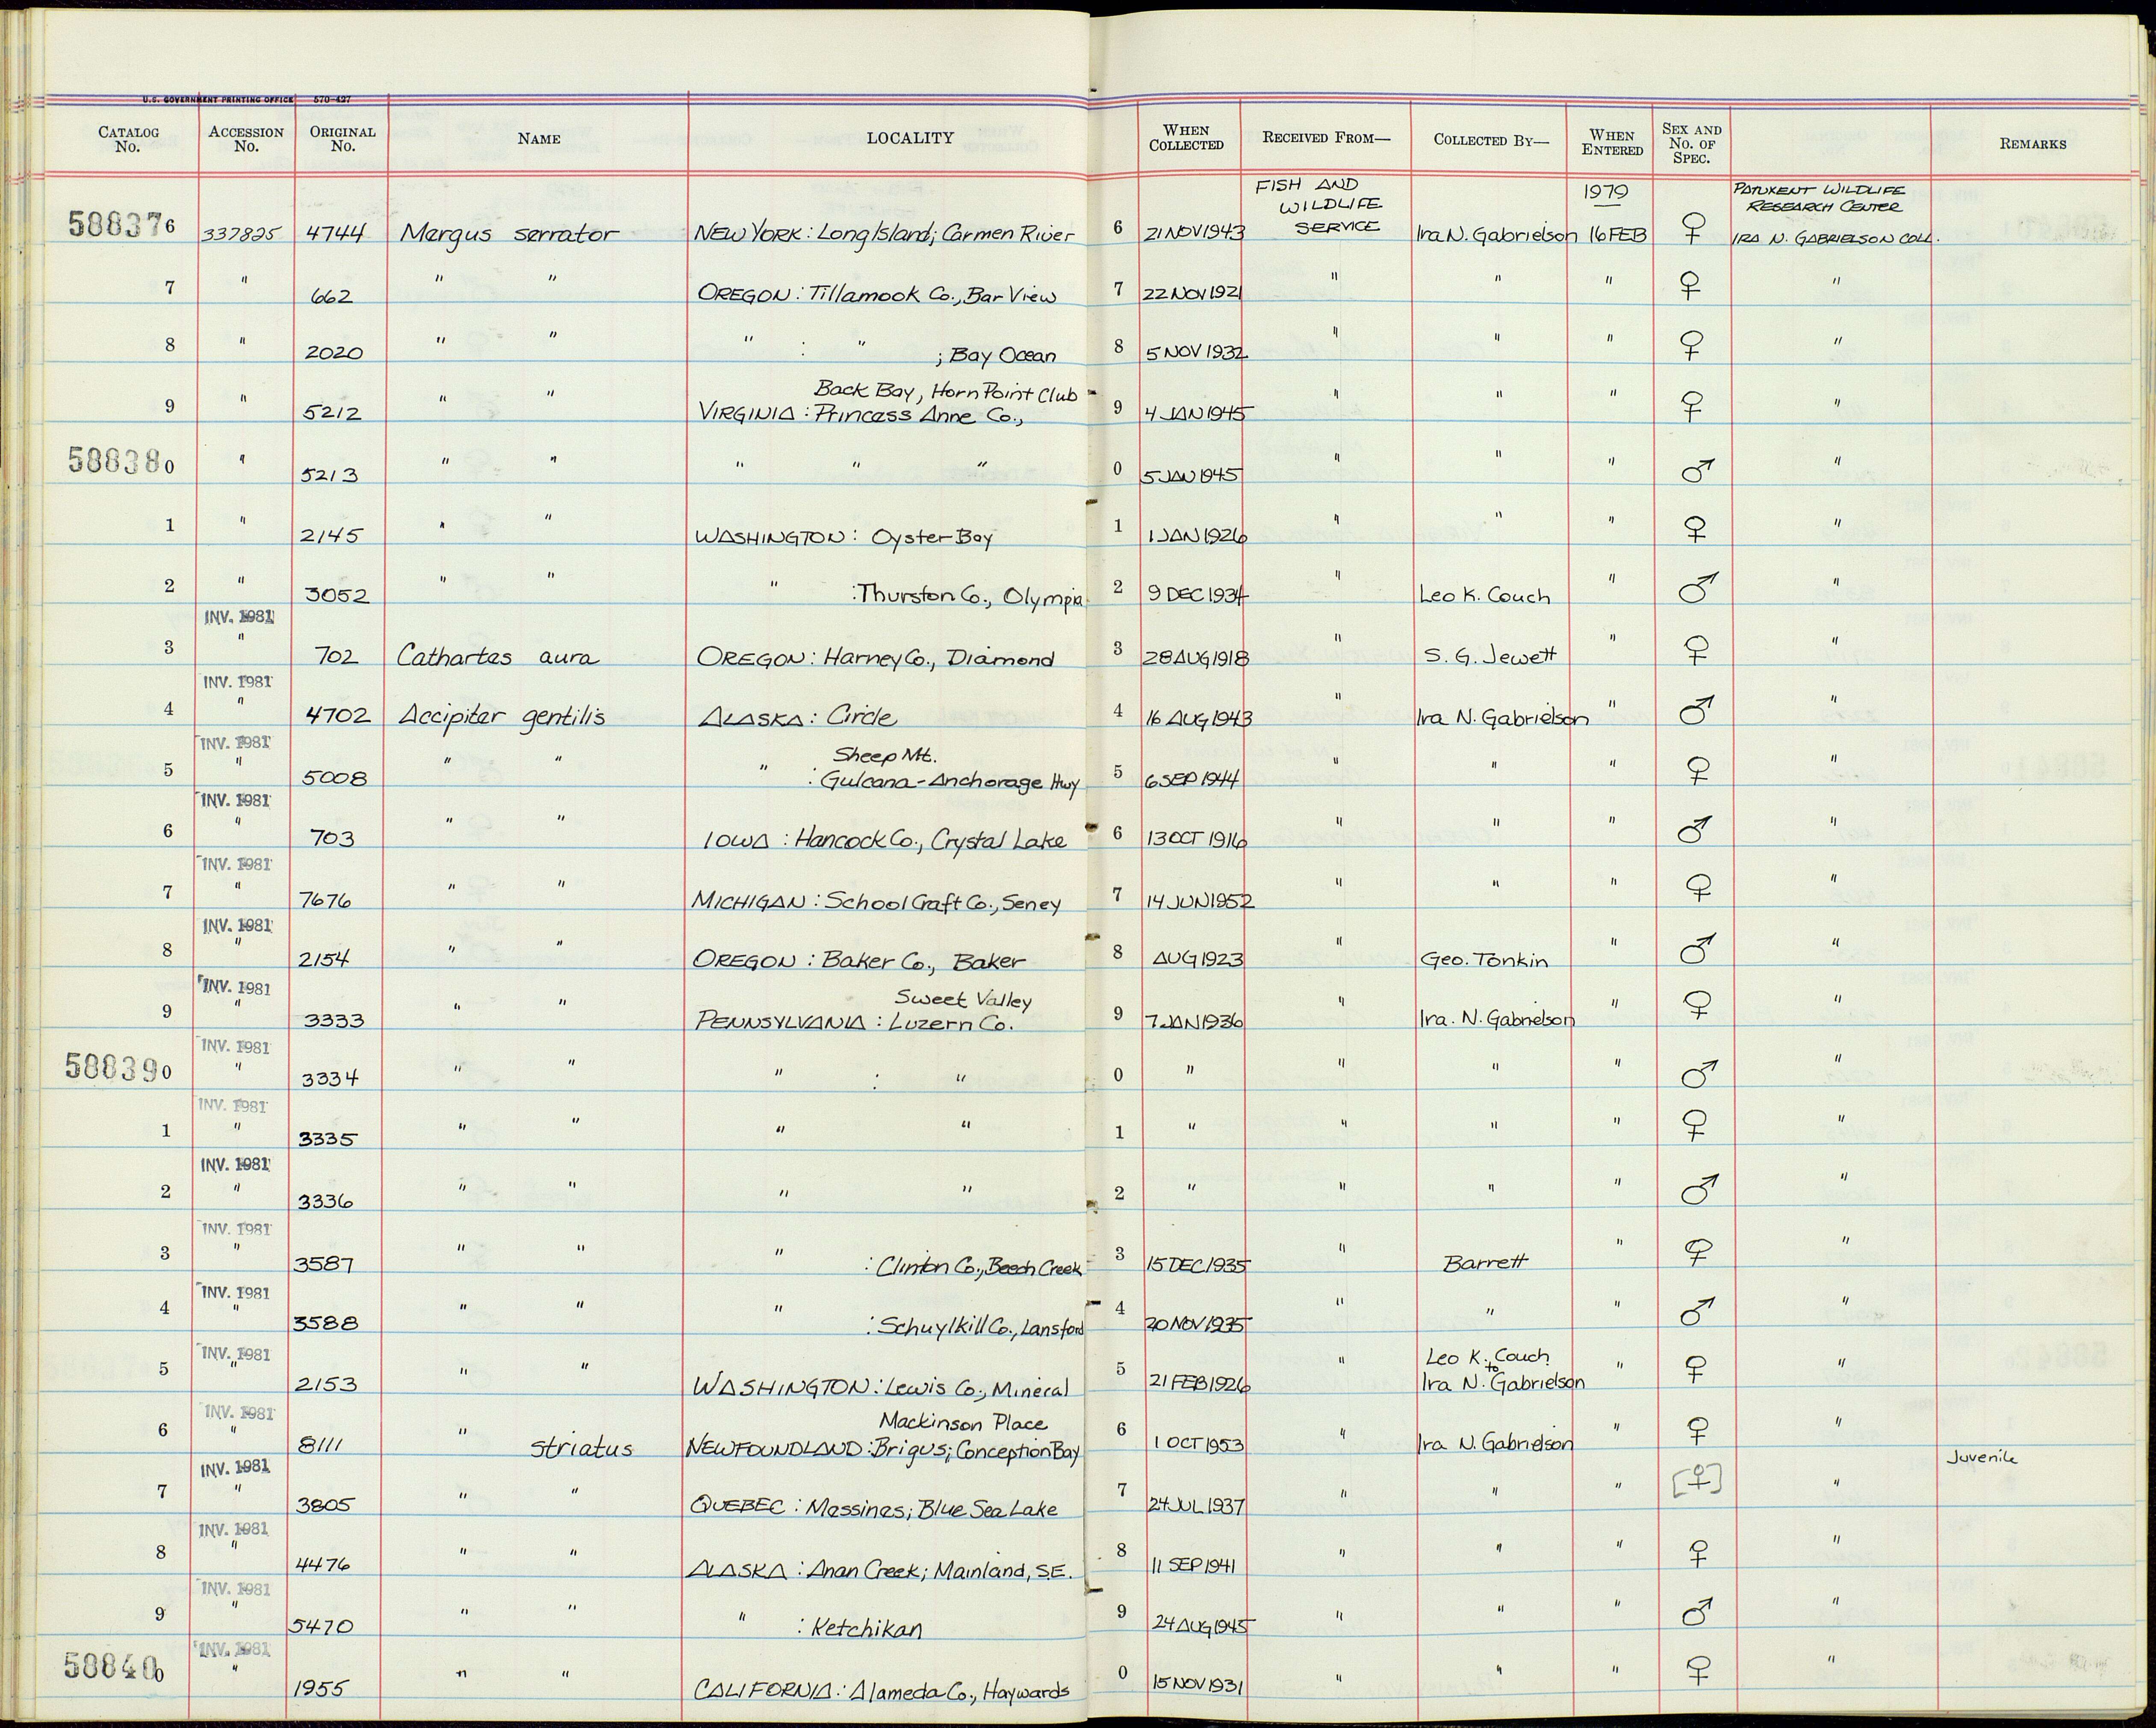 U.S. GOVERNMENT PRINTING OFFICE 570-427
CATALOG No. ACCESSION No. ORIGINAL No. NAME LOCALITY WHEN COLLECTED RECEIVED FROM— COLLECTED BY— WHEN ENTERED SEX AND No. OF SPEC. REMARKS
FISH AND WILDLIFE SERVICE 1979 PATUXENT WILDLIFE RESEARCH CENTER
588376 337825 4744 Mergus serrator NEW YORK: Long Island; Carmen River 6 21 NOV 1943 Ira N. Gabrielson 16 FEB ♀ IRA N. GABRIELSON COLL.
7 " 662 " " OREGON: Tillamook Co., Bar View 7 22 NOV 1921 " " " ♀ "
8 " 2020 " " " : " ; Bay Ocean 8 5 NOV 1932 " " " ♀ "
Back Bay, Horn Point Club
9 " 5212 " " VIRGINIA: Princess Anne Co., 9 4 JAN 1945 " " " ♀ "
588380 " 5213 " " " " " 0 5 JAN 1945 " " " ♂ "
1 " 2145 " " WASHINGTON: Oyster Bay 1 1 JAN 1926 " " " ♀ "
2 " 3052 " " " : Thurston Co., Olympia 2 9 DEC 1934 " Leo K. Couch " ♂ "
INV. 1981
3 " 702 Cathartes aura OREGON: Harney Co., Diamond 3 28 AUG 1918 " S. G. Jewett " ♀ "
INV. 1981
4 " 4702 Accipiter gentilis ALASKA: Circle 4 16 AUG 1943 " Ira N. Gabrielson " ♂ "
INV. 1981 Sheep Mt.
5 " 5008 " " " : Gulcana-Anchorage Hwy 5 6 SEP 1944 " " " ♀ "
INV. 1981
6 " 703 " " IOWA: Hancock Co., Crystal Lake 6 13 OCT 1916 " " " ♂ "
INV. 1981
7 " 7676 " " MICHIGAN: School Craft Co., Seney 7 14 JUN 1952 " " " ♀ "
INV. 1981
8 " 2154 " " OREGON: Baker Co., Baker 8 AUG 1923 " Geo. Tonkin " ♂ "
INV. 1981 Sweet Valley
9 " 3333 " " PENNSYLVANIA: Luzern Co. 9 7 JAN 1936 " Ira. N. Gabrielson " ♀ "
INV. 1981
588390 " 3334 " " " : " 0 " " " " ♂ "
INV. 1981
1 " 3335 " " " " 1 " " " " ♀ "
INV. 1981
2 " 3336 " " " " 2 " " " " ♂ "
INV. 1981
3 " 3587 " " " : Clinton Co., Beech Creek 3 15 DEC 1935 " Barrett " ♀ "
INV. 1981
4 " 3588 " " " : Schuylkill Co., Lansford 4 20 NOV 1935 " " " ♂ "
INV. 1981 Leo K. Couch to
5 " 2153 " " WASHINGTON: Lewis Co., Mineral 5 21 FEB 1926 " Ira N. Gabrielson " ♀ "
INV. 1981 Mackinson Place
6 " 8111 " striatus NEWFOUNDLAND: Brigus; Conception Bay 6 1 OCT 1953 " Ira N. Gabrielson " ♀ "
INV. 1981 Juvenile
7 " 3805 " " QUEBEC: Messines; Blue Sea Lake 7 24 JUL 1937 " " " [♀] "
INV. 1981
8 " 4476 " " ALASKA: Anan Creek; Mainland, S.E. 8 11 SEP 1941 " " " ♀ "
INV. 1981
9 " 5470 " " " : Ketchikan 9 24 AUG 1945 " " " ♂ "
INV. 1981
588400 " 1955 " " CALIFORNIA: Alameda Co., Haywards 0 15 NOV 1931 " " " ♀ "